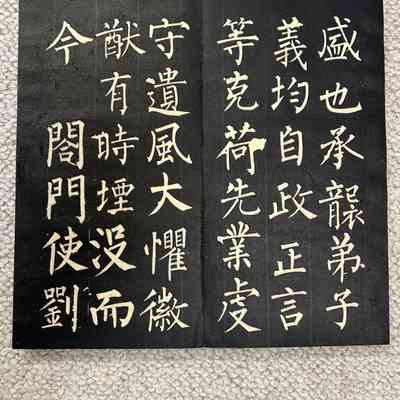 盛也承襲弟子
義均自政正言
等克荷先業虔
守遺風大懼徽
猷有時堙没而
今 閤門使劉